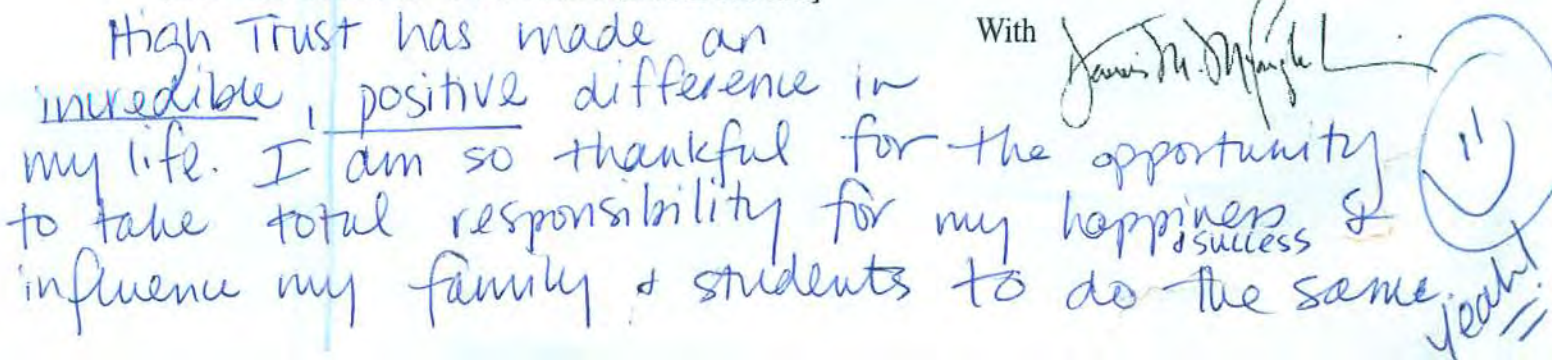 With
High Trust has made an
incredible, positive difference in
my life. I am so thankful for the opportunity
to take total responsibility for my happiness &
& success
influence my family & students to do the same.
Yeah!